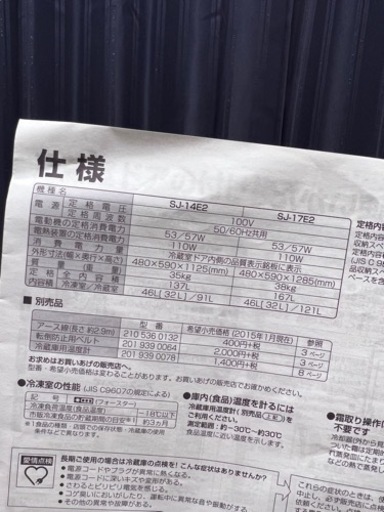 仕様
機種名 SJ-14E2 SJ-17E2
電源 定格電圧 100V
定格周波数 50/60Hz共用
電動機の定格消費電力 53/57W 53/57W
電熱装置の定格消費電力 110W 110W
消費電力量 冷蔵室ドア内側の品質表示銘板に表示
外形寸法(幅×奥行×高さ) 480×590×1125(mm) 480×590×1285(mm)
質量(重量) 35kg 38kg
定格内容積 全内容積 137L 167L
冷凍室/冷蔵室 46L[32L]/91L 46L[32L]/121L
■別売品
型番 希望小売価格(2015年1月現在) 参照
アース線(長さ約2.9m) 210 536 0132 400円+税 3ページ
転倒防止用ベルト 201 939 0064 2,000円+税 3ページ
冷蔵庫用温度計 201 939 0078 1,400円+税 8ページ
お求めはお買いあげの販売店で。
型番・希望小売価格は変わることがあります。お買いあげの販売店でお確かめください。
■冷凍室の性能(JIS C9607の規定による)
記号 (フォースター)
冷凍負荷温度(食品温度) −18℃以下
市販冷凍食品の貯蔵期間の目安 約3ヵ月
※冷凍食品の貯蔵期間
●庫内(食品)温度を計るには
冷蔵庫用温度計(別売品)を
ご利用ください。
測定範囲：約−30℃〜約30℃
食品温度に近い温度を示します。
■霜取り操作
不要です
愛情点検
長期ご使用の場合は冷蔵庫の点検を！こんな症状はありませんか？
●電源コードやプラグが異常に熱くなる。
●電源コードに深いキズや変形がある。
●さわるとピリピリ電気を感じる。
●コゲ臭いにおいがしたり、運転中に異常な音や振動がする。
●その他の異常や故障がある。
これらの症状のときは、